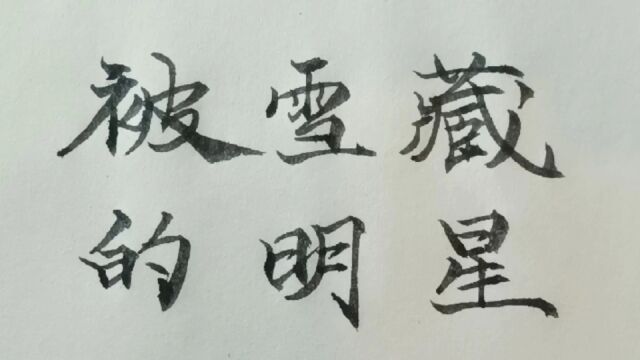 被雪藏
的明星